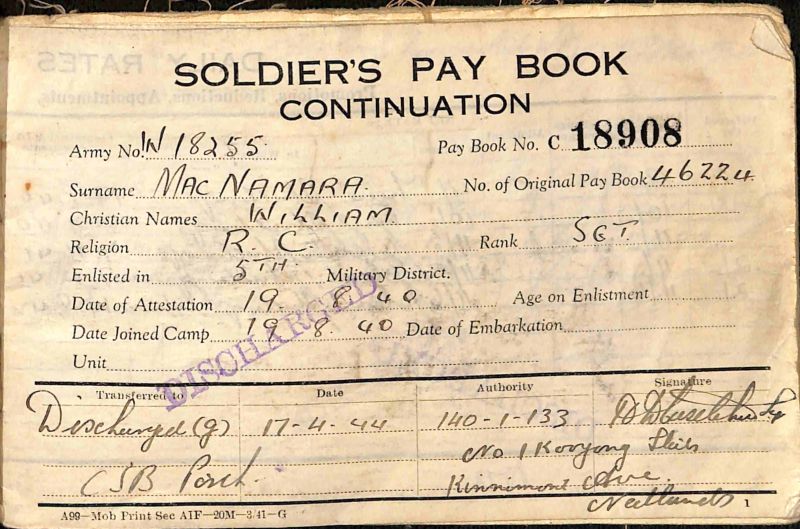 SOLDIER'S PAY BOOK
CONTINUATION
Army No. W 18255 Pay Book No. C 18908
Surname MAC NAMARA. No. of Original Pay Book 46224
Christian Names WILLIAM
Religion R. C. Rank SGT.
Enlisted in 5TH Military District.
Date of Attestation 19. 8 40 Age on Enlistment
Date Joined Camp 19 8. 40 Date of Embarkation
Unit
DISCHARGED
Transferred to Date Authority Signature
Discharged (g) 17-4-44 140-1-133
No 1 Kooyong Flats
CSB Perth. Kinnimont Ave.
Nedlands
A99—Mob Print Sec AIF—20M—3/41—G 1